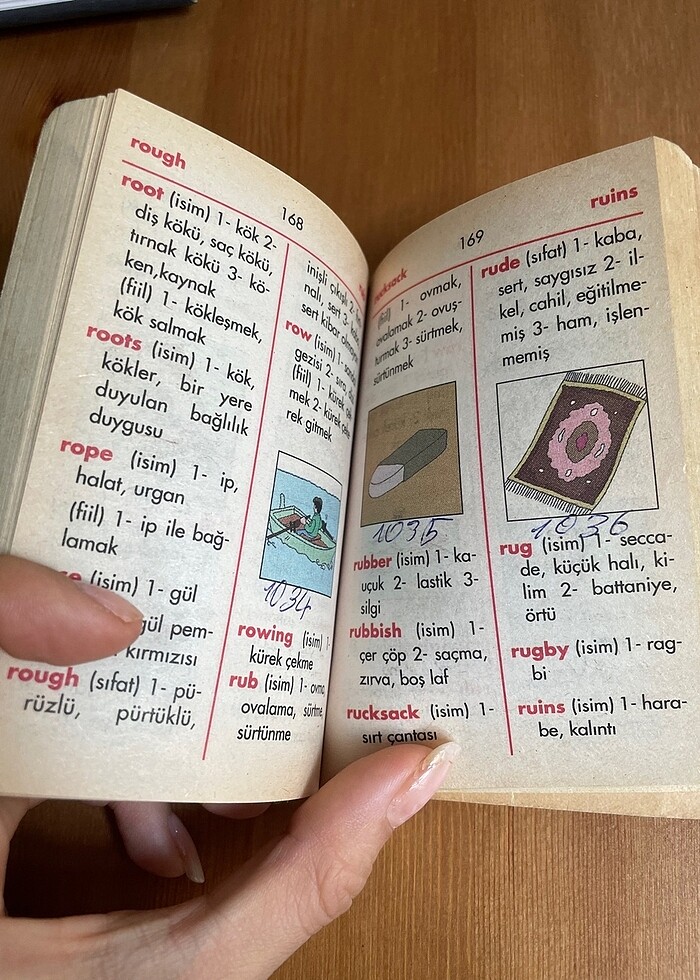 rough
168
root (isim) 1- kök 2-
diş kökü, saç kökü,
tırnak kökü 3- kö-
ken,kaynak
(fiil) 1- kökleşmek,
kök salmak
roots (isim) 1- kök,
kökler, bir yere
duyulan bağlılık
duygusu
rope (isim) 1- ip,
halat, urgan
(fiil) 1- ip ile bağ-
lamak
(isim) 1- gül
gül pem-
kırmızısı
rough (sıfat) 1- pü-
rüzlü, pürtüklü,
inişli çıkışlı
sert 3-
sert kibar
row (isim) 1-
gezisi 2- sıra
(fiil) 1- kürek
mek 2- kürek
rek gitmek
1034
rowing (isim) 1-
kürek çekme
rub (isim) 1- ovma,
ovalama, sürtme,
sürtünme
169
ruins
rucksack
(fiil) 1- ovmak,
ovalamak 2- ovuş-
turmak 3- sürtmek,
sürtünmek
1035
rubber (isim) 1- ka-
uçuk 2- lastik 3-
silgi
rubbish (isim) 1-
çer çöp 2- saçma,
zırva, boş laf
rucksack (isim) 1-
sırt çantası
rude (sıfat) 1- kaba,
sert, saygısız 2- il-
kel, cahil, eğitilme-
miş 3- ham, işlen-
memiş
1036
rug (isim) 1- secca-
de, küçük halı, ki-
lim 2- battaniye,
örtü
rugby (isim) 1- rag-
bi
ruins (isim) 1- hara-
be, kalıntı